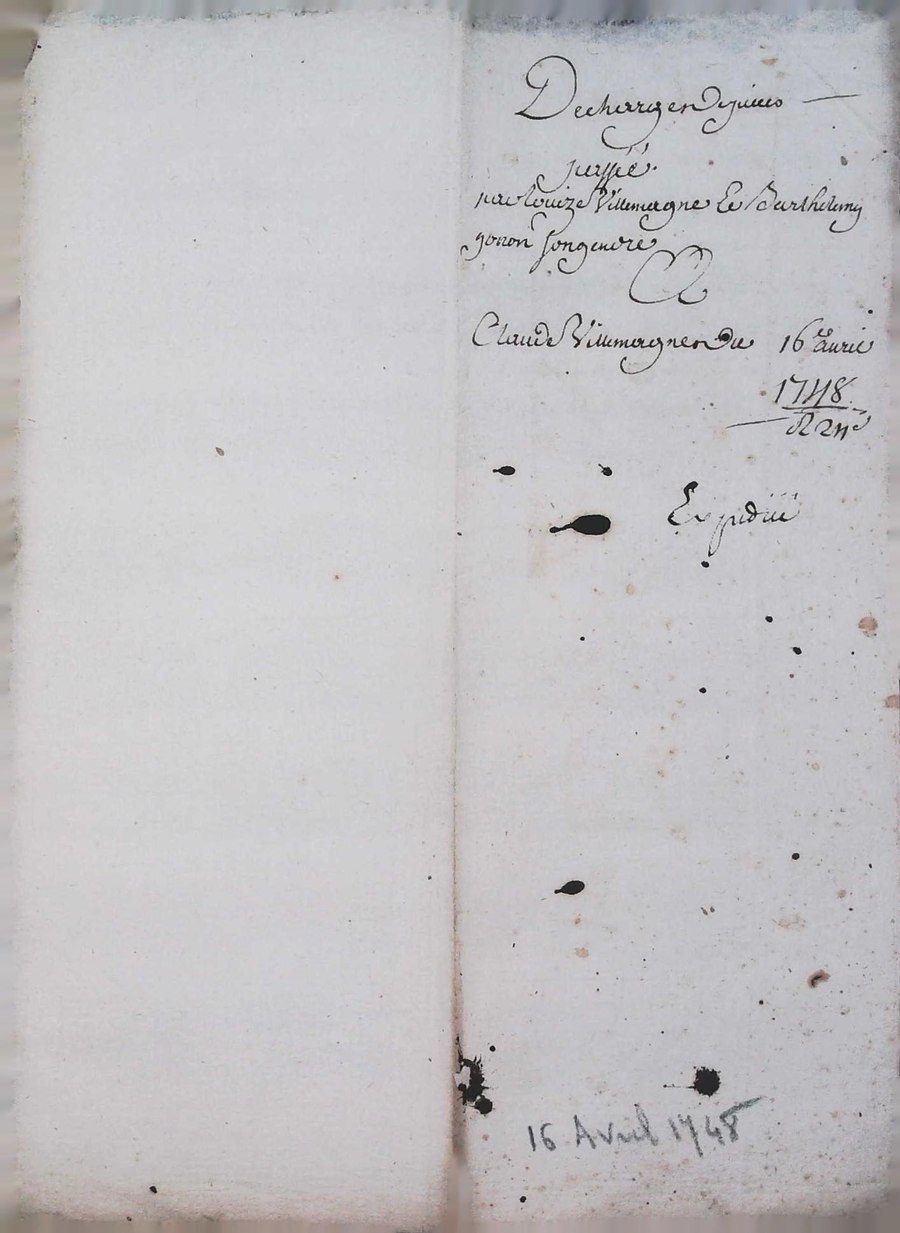 Decharge en
passé
par Louize Villemagne Et Barthelemy
gonon son gendre
A
Claude Villemagne Du 16e avril
1748
Expedié
16 Avril 1748